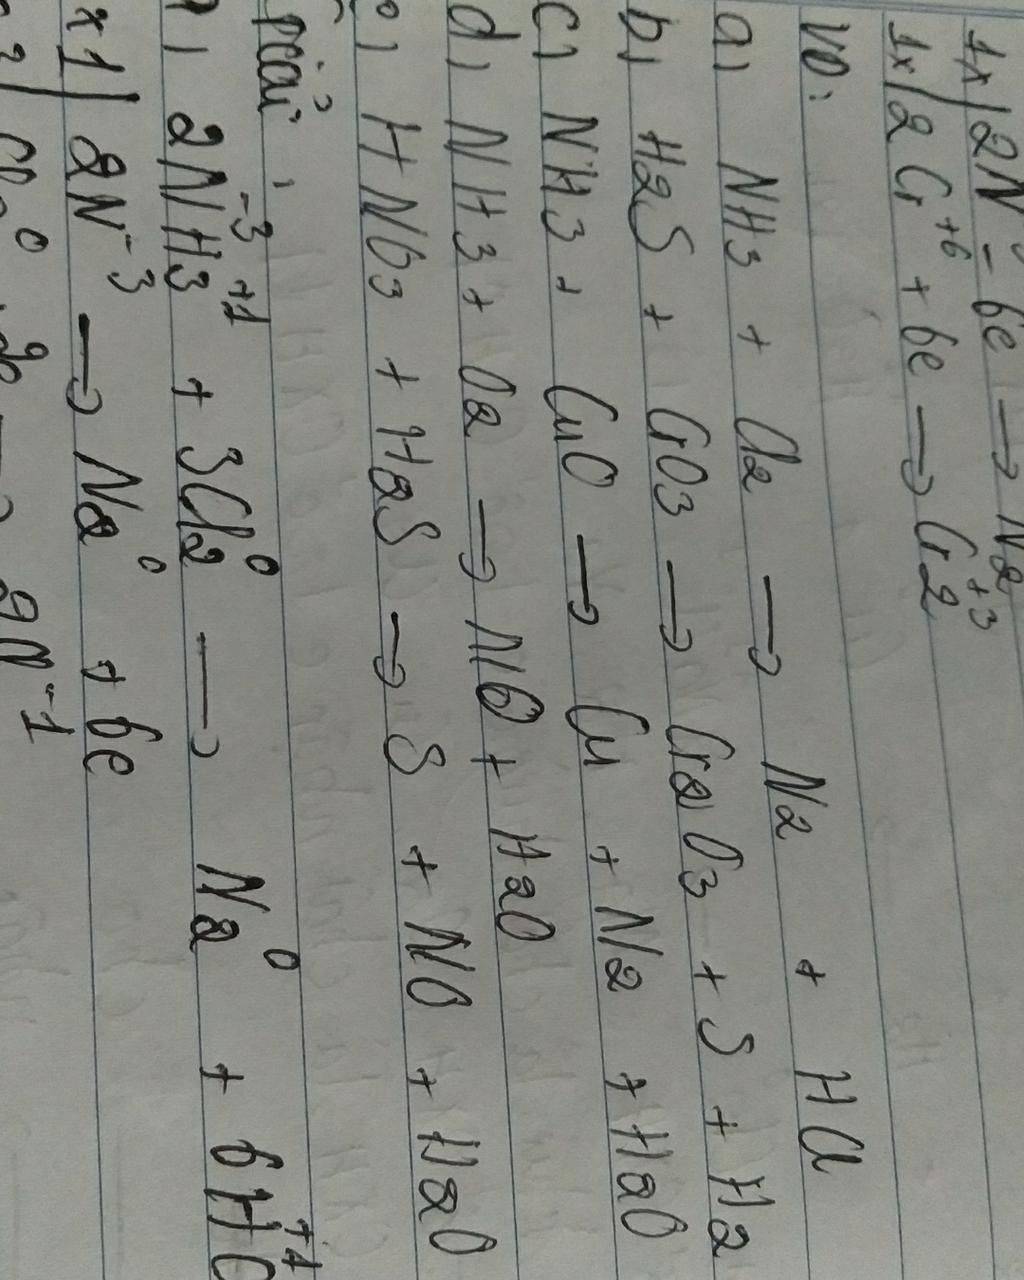 1x | 2N - 6e → N2
1x | 2Cr+6 + 6e → Cr2+3
VD:
a) NH3 + Cl2 → N2 + HCl
b) H2S + CrO3 → Cr2O3 + S + H2
c) NH3 + CuO → Cu + N2 + H2O
d) NH3 + O2 → NO + H2O
e) HNO3 + H2S → S + NO + H2O
Giải:
a) 2N-3H3+1 + 3Cl20 → N20 + 6H+1C
x1 | 2N-3 → N20 + 6e